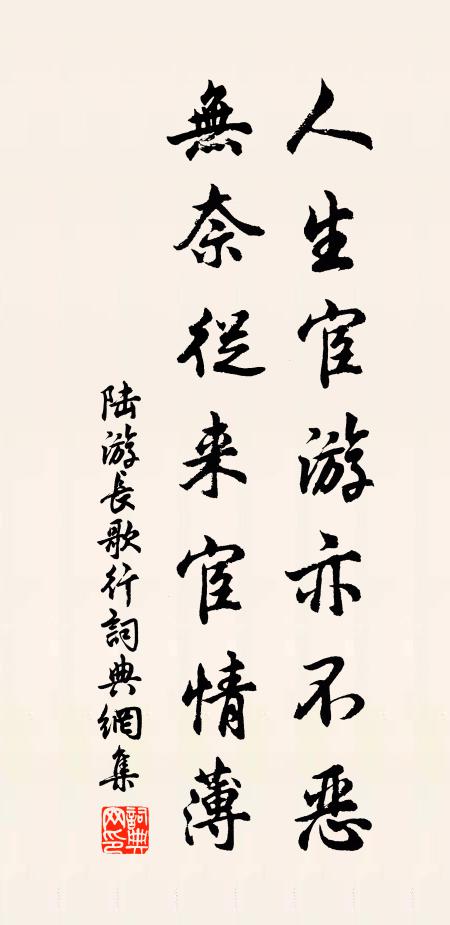 人生宦游亦不恶
無奈從来宦情薄
陸游長歌行詞典網集
詞典網印